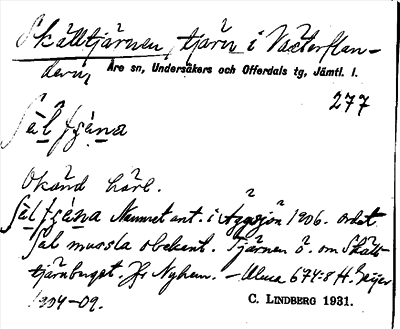 Skälltjärnen, tjärn i Västerflan-
dern, Åre sn, Undersåkers och Offerdals tg, Jämtl. l.
277
Okänd härl.
Namnet ant. i Äggsjön 1906. ordet
mussla obekant. Tjärnen ö. om Skäll-
tjärnberget. Jfr Nyhem. – 674:8 H. Geijer
1904-09.
C. LINDBERG 1931.